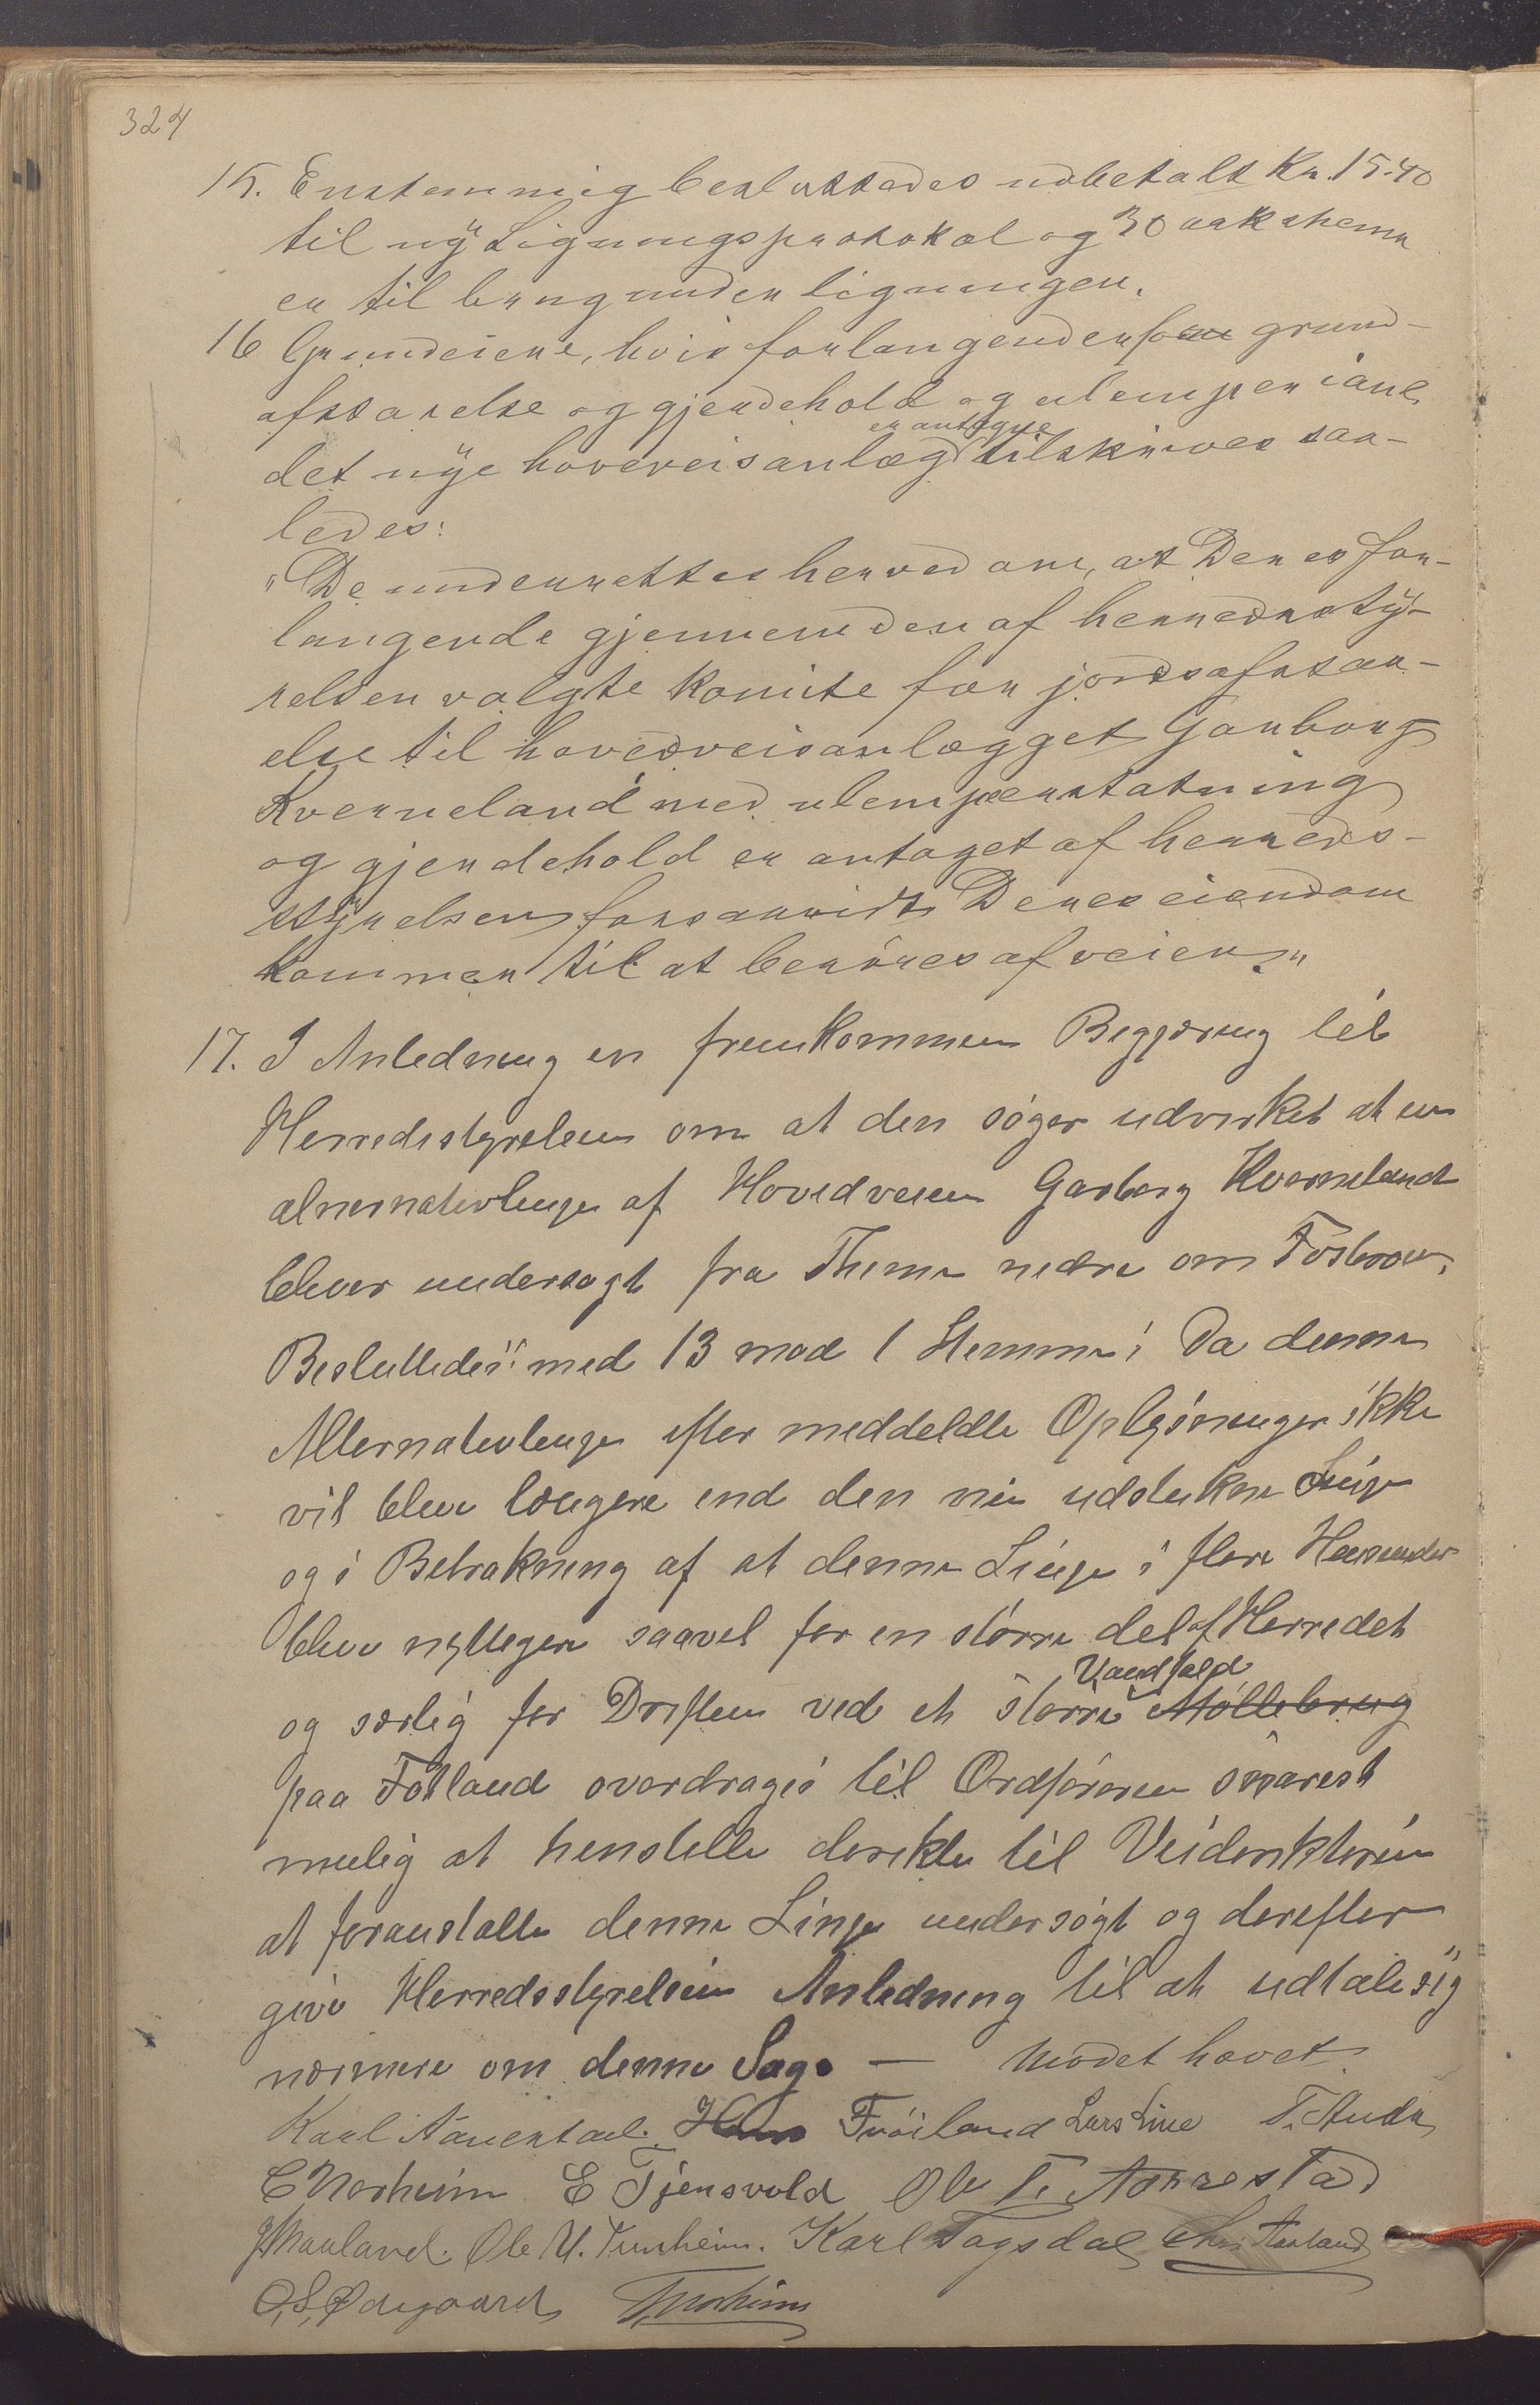 324
15. Enstemmig besluttedes udbetalt Kr. 15.40
til ny Ligningsprotokol og 30 ark shema
er til brug under ligningen.
16 Grundeiere, hvis forlangender for grund-
afstaaelse og gjerdehold og ulemper i anl.
er antagne
det nye hoveveisanlæg tilskrives saa-
ledes:
"De underrettes herved om, at Deres for-
langende gjennem den af herredssty-
relsen valgte komite for jordsafstaa-
else til hovedveisanlægget Garborg
Kverneland med ulempeerstatning
og gjerdehold er antaget af herreds-
styrelsen forsaavidt Deres eiendom
kommer til at berøres af veien."
17. I Anledning en fremkommen Begjæring til
Herredsstyrelsen om at den søger udvirket at en
alnernativlinje af Hovedveien Garborg Kverneland
bliver undersøgt fra Thime nedre om Fosbroen,
Besluttedes: med 13 mod 1 Stemme: Da denne
Alternativlinje efter meddeldte Oplysninger ikke
vil blive længere end den nu udstukne Linje
og i Betrakning af at denne Linje i flere Henseender
blive nyttigere saavel for en større del af Herredet
Vandfald
og særlig for Driften ved et større Møllebrug
paa Fotland overdrages til Ordføreren snarest
mulig at henstille derekte til Veiderektøren
at foranstalte denne Linje undersøgt og derefter
give Herredsstyrelsen Anledning til at udtale sig
nærmere om denne Sag. — Mødet hævet.
Karl Frøiland Lars Line T. Auda
C Norheim E Tjensvold Ole T. Aarrestad
Maaland. Ole U. Tunheim. Karl Fagsdal
O, S, Ødegaard